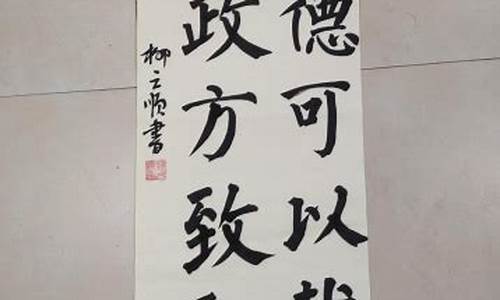 德可以
政方致
柳之顺書